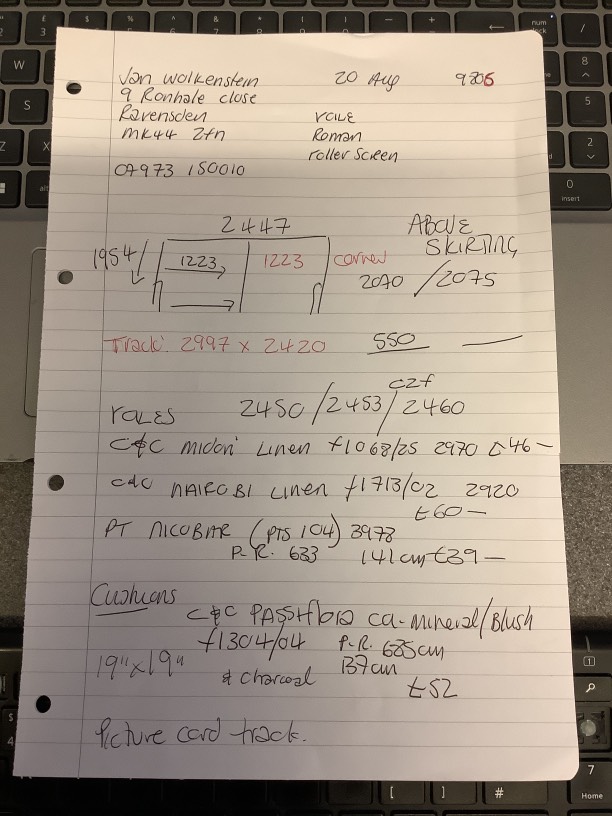 Jan Wolkenstein 20 Aug 9806
9 Ronhale close
Ravensden voile
MK44 2fn Roman
roller screen
07973 150010
2447 ABOVE
SKIRTING
1954 1223 1223 corner
2070 / 2075
Track: 2997 x 2420 550 —
czf
VOILES 2450 / 2453 / 2460
C&C Midori Linen f1068/25 2970 £46 –
C&C NAIROBI Linen f1713/02 2920
£60 –
PT NICOBAR (PTS 104) 3973
P.R. 633 141cm £39 –
Cushions
C&C PASSIflora ca-mineral/Blush
f1304/04 P.R. 685cm
19" x 19" & charcoal 137cm
£52
Picture card track.